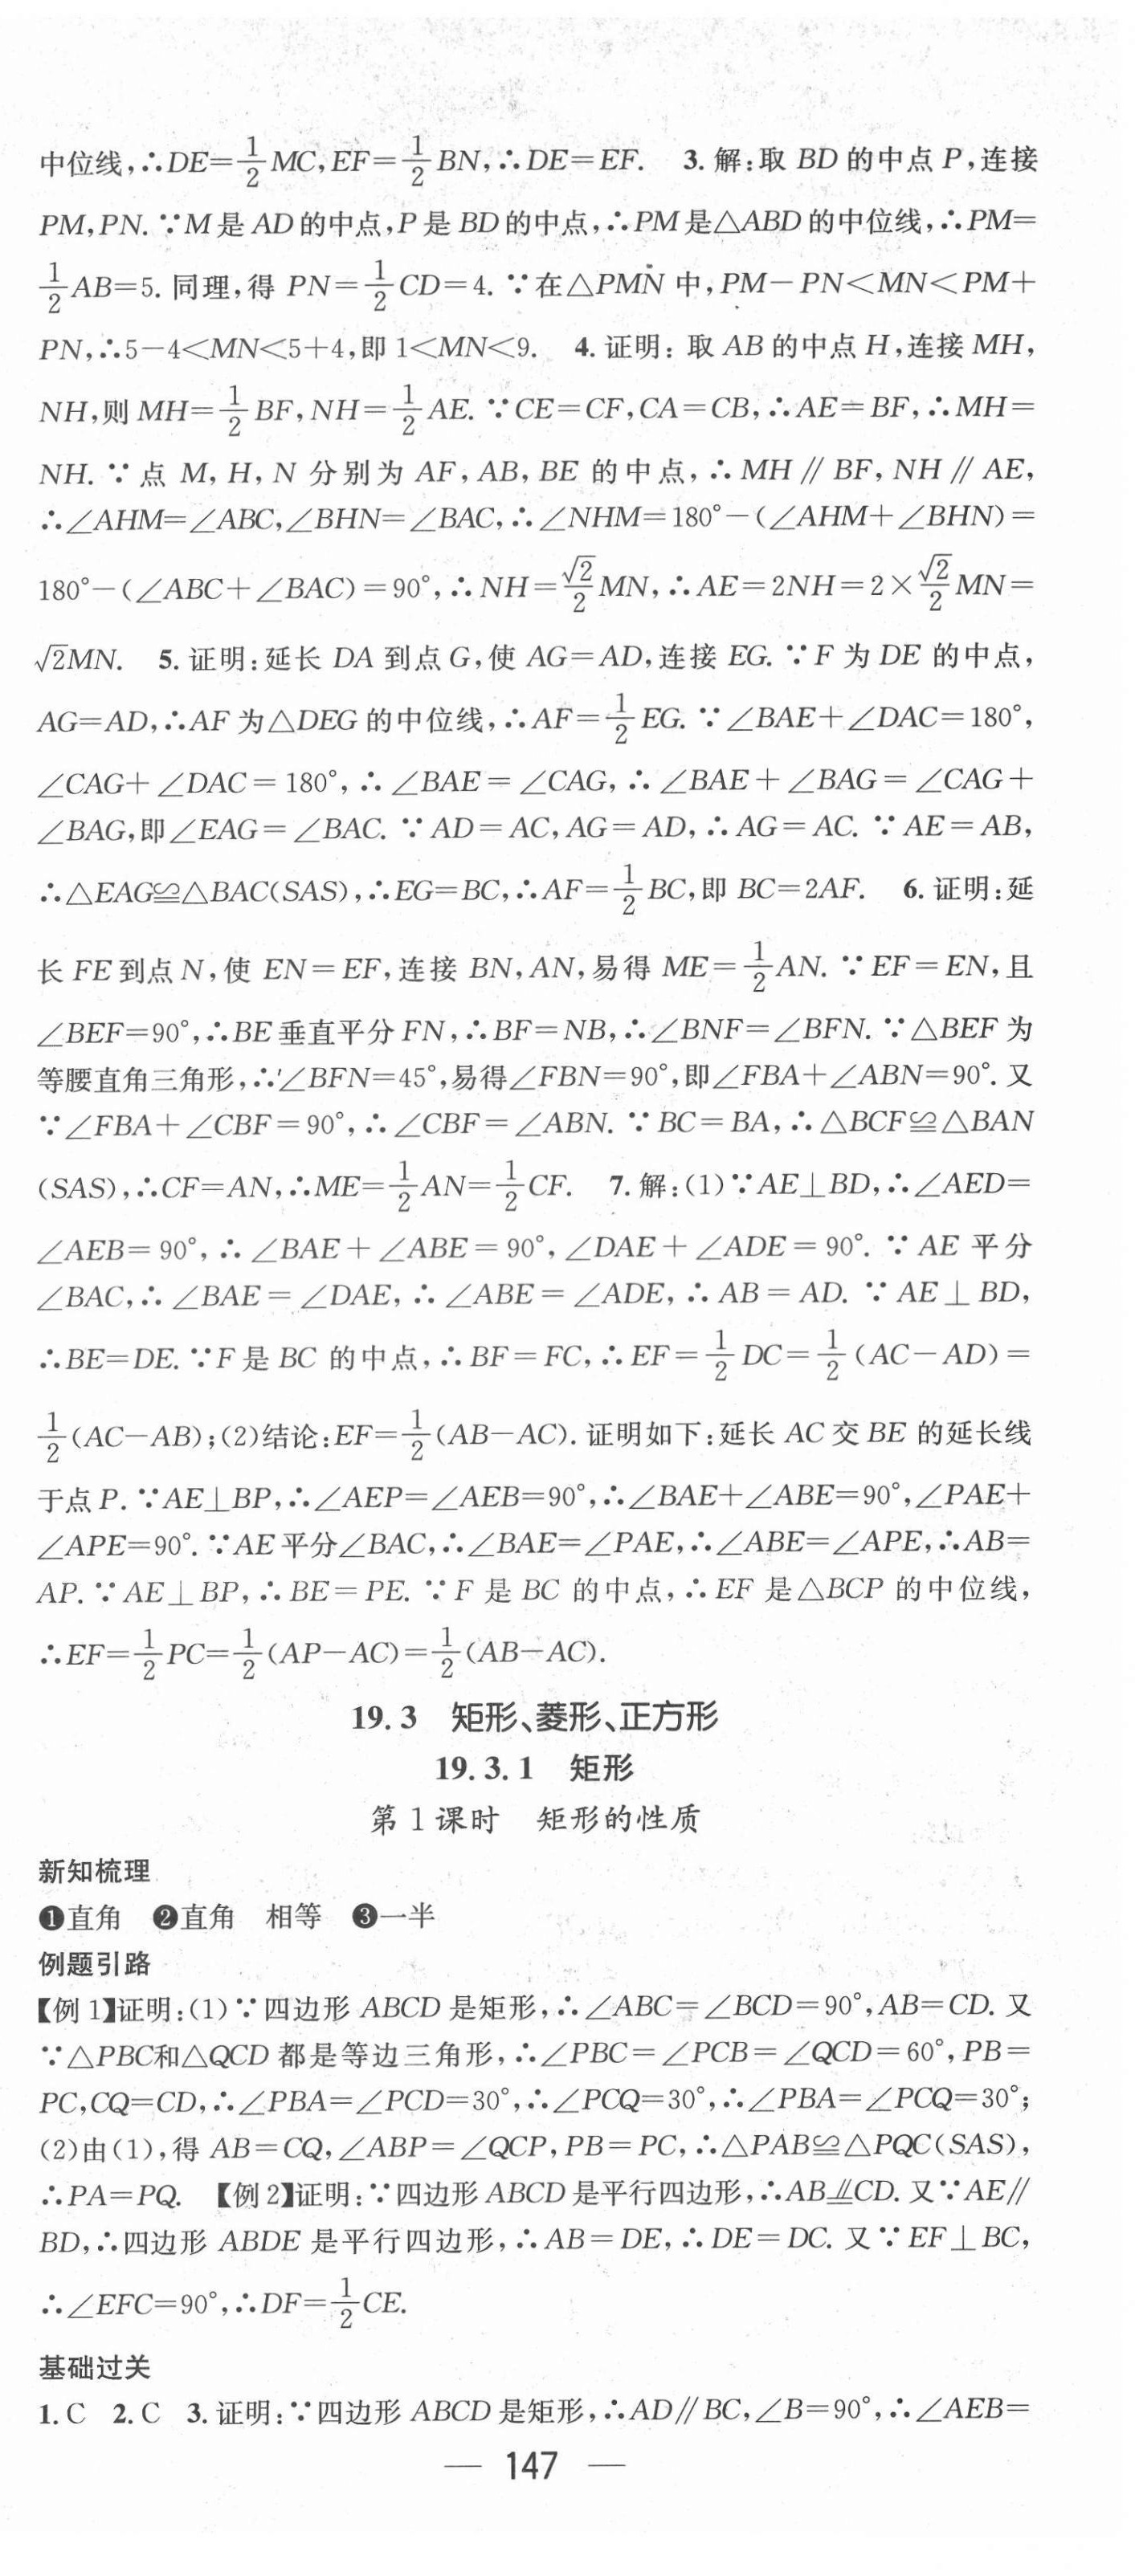 中位线,∴DE=1/2 MC,EF=1/2 BN,∴DE=EF. 3.解:取 BD 的中点 P,连接
PM,PN.∵M 是 AD 的中点,P 是 BD 的中点,∴PM 是△ABD 的中位线,∴PM=
1/2 AB=5. 同理,得 PN=1/2 CD=4. ∵在△PMN 中,PM-PN<MN<PM+
PN,∴5-4<MN<5+4,即 1<MN<9. 4.证明:取 AB 的中点 H,连接 MH,
NH,则 MH=1/2 BF,NH=1/2 AE.∵CE=CF,CA=CB,∴AE=BF,∴MH=
NH.∵点 M,H,N 分别为 AF,AB,BE 的中点,∴MH∥BF,NH∥AE,
∴∠AHM=∠ABC,∠BHN=∠BAC,∴∠NHM=180°-(∠AHM+∠BHN)=
180°-(∠ABC+∠BAC)=90°,∴NH=√2/2 MN,∴AE=2NH=2×√2/2 MN=
√2MN. 5.证明:延长 DA 到点 G,使 AG=AD,连接 EG.∵F 为 DE 的中点,
AG=AD,∴AF 为△DEG 的中位线,∴AF=1/2 EG.∵∠BAE+∠DAC=180°,
∠CAG+∠DAC=180°,∴∠BAE=∠CAG,∴∠BAE+∠BAG=∠CAG+
∠BAG,即∠EAG=∠BAC.∵AD=AC,AG=AD,∴AG=AC.∵AE=AB,
∴△EAG≌△BAC(SAS),∴EG=BC,∴AF=1/2 BC,即 BC=2AF. 6.证明:延
长 FE 到点 N,使 EN=EF,连接 BN,AN,易得 ME=1/2 AN.∵EF=EN,且
∠BEF=90°,∴BE 垂直平分 FN,∴BF=NB,∴∠BNF=∠BFN.∵△BEF 为
等腰直角三角形,∴∠BFN=45°,易得∠FBN=90°,即∠FBA+∠ABN=90°.又
∵∠FBA+∠CBF=90°,∴∠CBF=∠ABN.∵BC=BA,∴△BCF≌△BAN
(SAS),∴CF=AN,∴ME=1/2 AN=1/2 CF. 7.解:(1)∵AE⊥BD,∴∠AED=
∠AEB=90°,∴∠BAE+∠ABE=90°,∠DAE+∠ADE=90°.∵AE 平分
∠BAC,∴∠BAE=∠DAE,∴∠ABE=∠ADE,∴AB=AD.∵AE⊥BD,
∴BE=DE.∵F 是 BC 的中点,∴BF=FC,∴EF=1/2 DC=1/2(AC-AD)=
1/2(AC-AB);(2)结论:EF=1/2(AB-AC).证明如下:延长 AC 交 BE 的延长线
于点 P.∵AE⊥BP,∴∠AEP=∠AEB=90°,∴∠BAE+∠ABE=90°,∠PAE+
∠APE=90°.∵AE 平分∠BAC,∴∠BAE=∠PAE,∴∠ABE=∠APE,∴AB=
AP.∵AE⊥BP,∴BE=PE.∵F 是 BC 的中点,∴EF 是△BCP 的中位线,
∴EF=1/2 PC=1/2(AP-AC)=1/2(AB-AC).
19.3 矩形、菱形、正方形
19.3.1 矩形
第 1 课时 矩形的性质
新知梳理
❶直角 ❷直角 相等 ❸一半
例题引路
【例 1】证明:(1)∵四边形 ABCD 是矩形,∴∠ABC=∠BCD=90°,AB=CD.又
∵△PBC和△QCD 都是等边三角形,∴∠PBC=∠PCB=∠QCD=60°,PB=
PC,CQ=CD,∴∠PBA=∠PCD=30°,∴∠PCQ=30°,∴∠PBA=∠PCQ=30°;
(2)由(1),得 AB=CQ,∠ABP=∠QCP,PB=PC,∴△PAB≌△PQC(SAS),
∴PA=PQ. 【例 2】证明:∵四边形 ABCD 是平行四边形,∴AB⫫CD.又∵AE∥
BD,∴四边形 ABDE 是平行四边形,∴AB=DE,∴DE=DC.又∵EF⊥BC,
∴∠EFC=90°,∴DF=1/2 CE.
基础过关
1.C 2.C 3.证明:∵四边形 ABCD 是矩形,∴AD∥BC,∠B=90°,∴∠AEB=
— 147 —